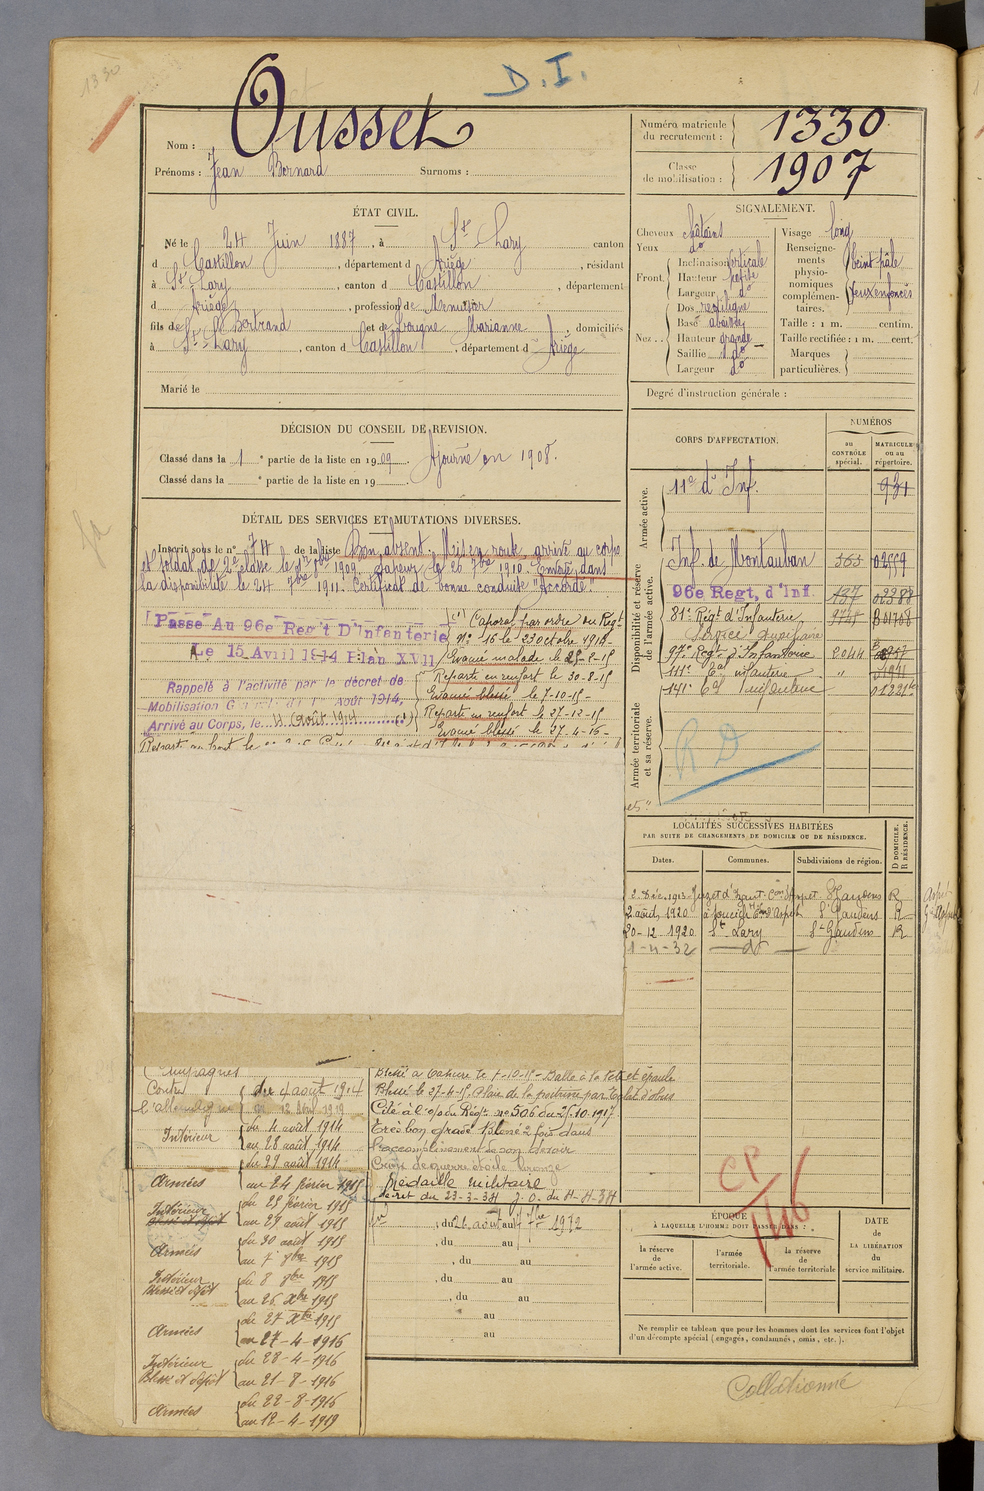 1330
D. I.
Nom : Ousset
Prénoms : Jean Bernard Surnoms :
Numéro matricule du recrutement : 1330
Classe de mobilisation : 1907
ÉTAT CIVIL.
Né le 24 Juin 1887, à St Lary canton
d Castillon, département d Ariège, résidant
à St Lary, canton d Castillon, département
d Ariège, profession de Menuisier
fils de Bertrand et de Dougne Marianne, domiciliés
à St Lary, canton d Castillon, département d Ariège
Marié le
SIGNALEMENT.
Cheveux châtains
Yeux do
Front. Inclinaison verticale
Hauteur petite
Largeur do
Nez . . Dos rectiligne
Base abaissée
Hauteur grande
Saillie do
Largeur do
Visage long
Renseignements physionomiques complémentaires. teint pâle
Yeux enfoncés
Taille : 1 m. centim.
Taille rectifiée : 1 m. cent.
Marques particulières.
Degré d'instruction générale :
DÉCISION DU CONSEIL DE REVISION.
Classé dans la 1e partie de la liste en 1909. Ajourné en 1908.
Classé dans la e partie de la liste en 19
DÉTAIL DES SERVICES ET MUTATIONS DIVERSES.
Inscrit sous le no 74 de la liste Bon absent. Mis en route, arrivé au corps
et soldat de 2e classe le 1909. Sapeur le 26 7bre 1910. Envoyé dans
la disponibilité le 24 7bre 1911. Certificat de bonne conduite "Accordé"
Passé Au 96e Reg't D'Infanterie
Le 15 Avril 1914 Plan XVII
Rappelé à l'activité par le décret de
Mobilisation Générale du 1er Août 1914,
Arrivé au Corps, le 4 Août 1914 (1)
(1) Caporal par ordre du Régt
No 16 le 23 octobre 1914
Evacué malade le 25-2-15
Reparti en renfort le 30-8-15
Evacué blessé le 7-10-15
Reparti en renfort le 27-12-15
Evacué blessé le 27-4-16
CORPS D'AFFECTATION.
NUMÉROS
au CONTRÔLE spécial.
MATRICULE ou au répertoire.
Armée active.
11e d'Inf. 931
Disponibilité et réserve de l'armée active.
Inf. de Montauban 363 02559
96e Regt, d'Inf. 137 02388
81e Régt d'Infanterie 9745 B01708
Service Auxiliaire
97e Régt d'Infanterie 2044
111e Ct infanterie " 1911
141e
Armée territoriale et sa réserve.
R D
LOCALITÉS SUCCESSIVES HABITÉES
PAR SUITE DE CHANGEMENTS DE DOMICILE OU DE RÉSIDENCE.
Dates. Communes. Subdivisions de région. D DOMICILE. R RÉSIDENCE.
2 Déc. 1913 Juzet d'Izaut Con d'Aspet St Gaudens R
2 août 1920 St Gaudens R
20-12 1920 St Lary St Gaudens R
1-4-32 do
Campagnes
Contre l'Allemagne du 4 août 1914
au 12 Avril 1919
Intérieur du 4 août 1914
au 28 août 1914
Armées du 29 août 1914
au 24 février 1915
Intérieur du 25 février 1915
au 29 août 1915
Armées du 30 août 1915
au 7 8bre 1915
Intérieur Blessé et dépôt du 8 8bre 1915
au 26 Xbre 1915
Armées du 27 Xbre 1915
au 27-4-1916
Intérieur Blessé et dépôt du 28-4-1916
au 21-8-1916
Armées du 22-8-1916
au 12-4-1919
Blessé à Tahure le 7-10-15 - Balle à la tête et épaule
Blessé le 27-4-16. Plaie de la poitrine par Eclat d'obus
Cité à l'o/ du Régt no 506 du 25.10.1917
Très bon gradé blessé 2 fois dans
l'accomplissement de son devoir
Croix de guerre étoile bronze
Médaille militaire
décret du 23-3-34 J.O. du 4-4-34
, du 26 août au 7bre 1912
, du au
, du au
, du au
, du au
au
au
CP
146
ÉPOQUE
À LAQUELLE L'HOMME DOIT PASSER DANS :
la réserve de l'armée active.
l'armée territoriale.
la réserve de l'armée territoriale
DATE
de
LA LIBÉRATION
du
service militaire.
Ne remplir ce tableau que pour les hommes dont les services font l'objet
d'un décompte spécial (engagés, condamnés, omis, etc.).
Collationné